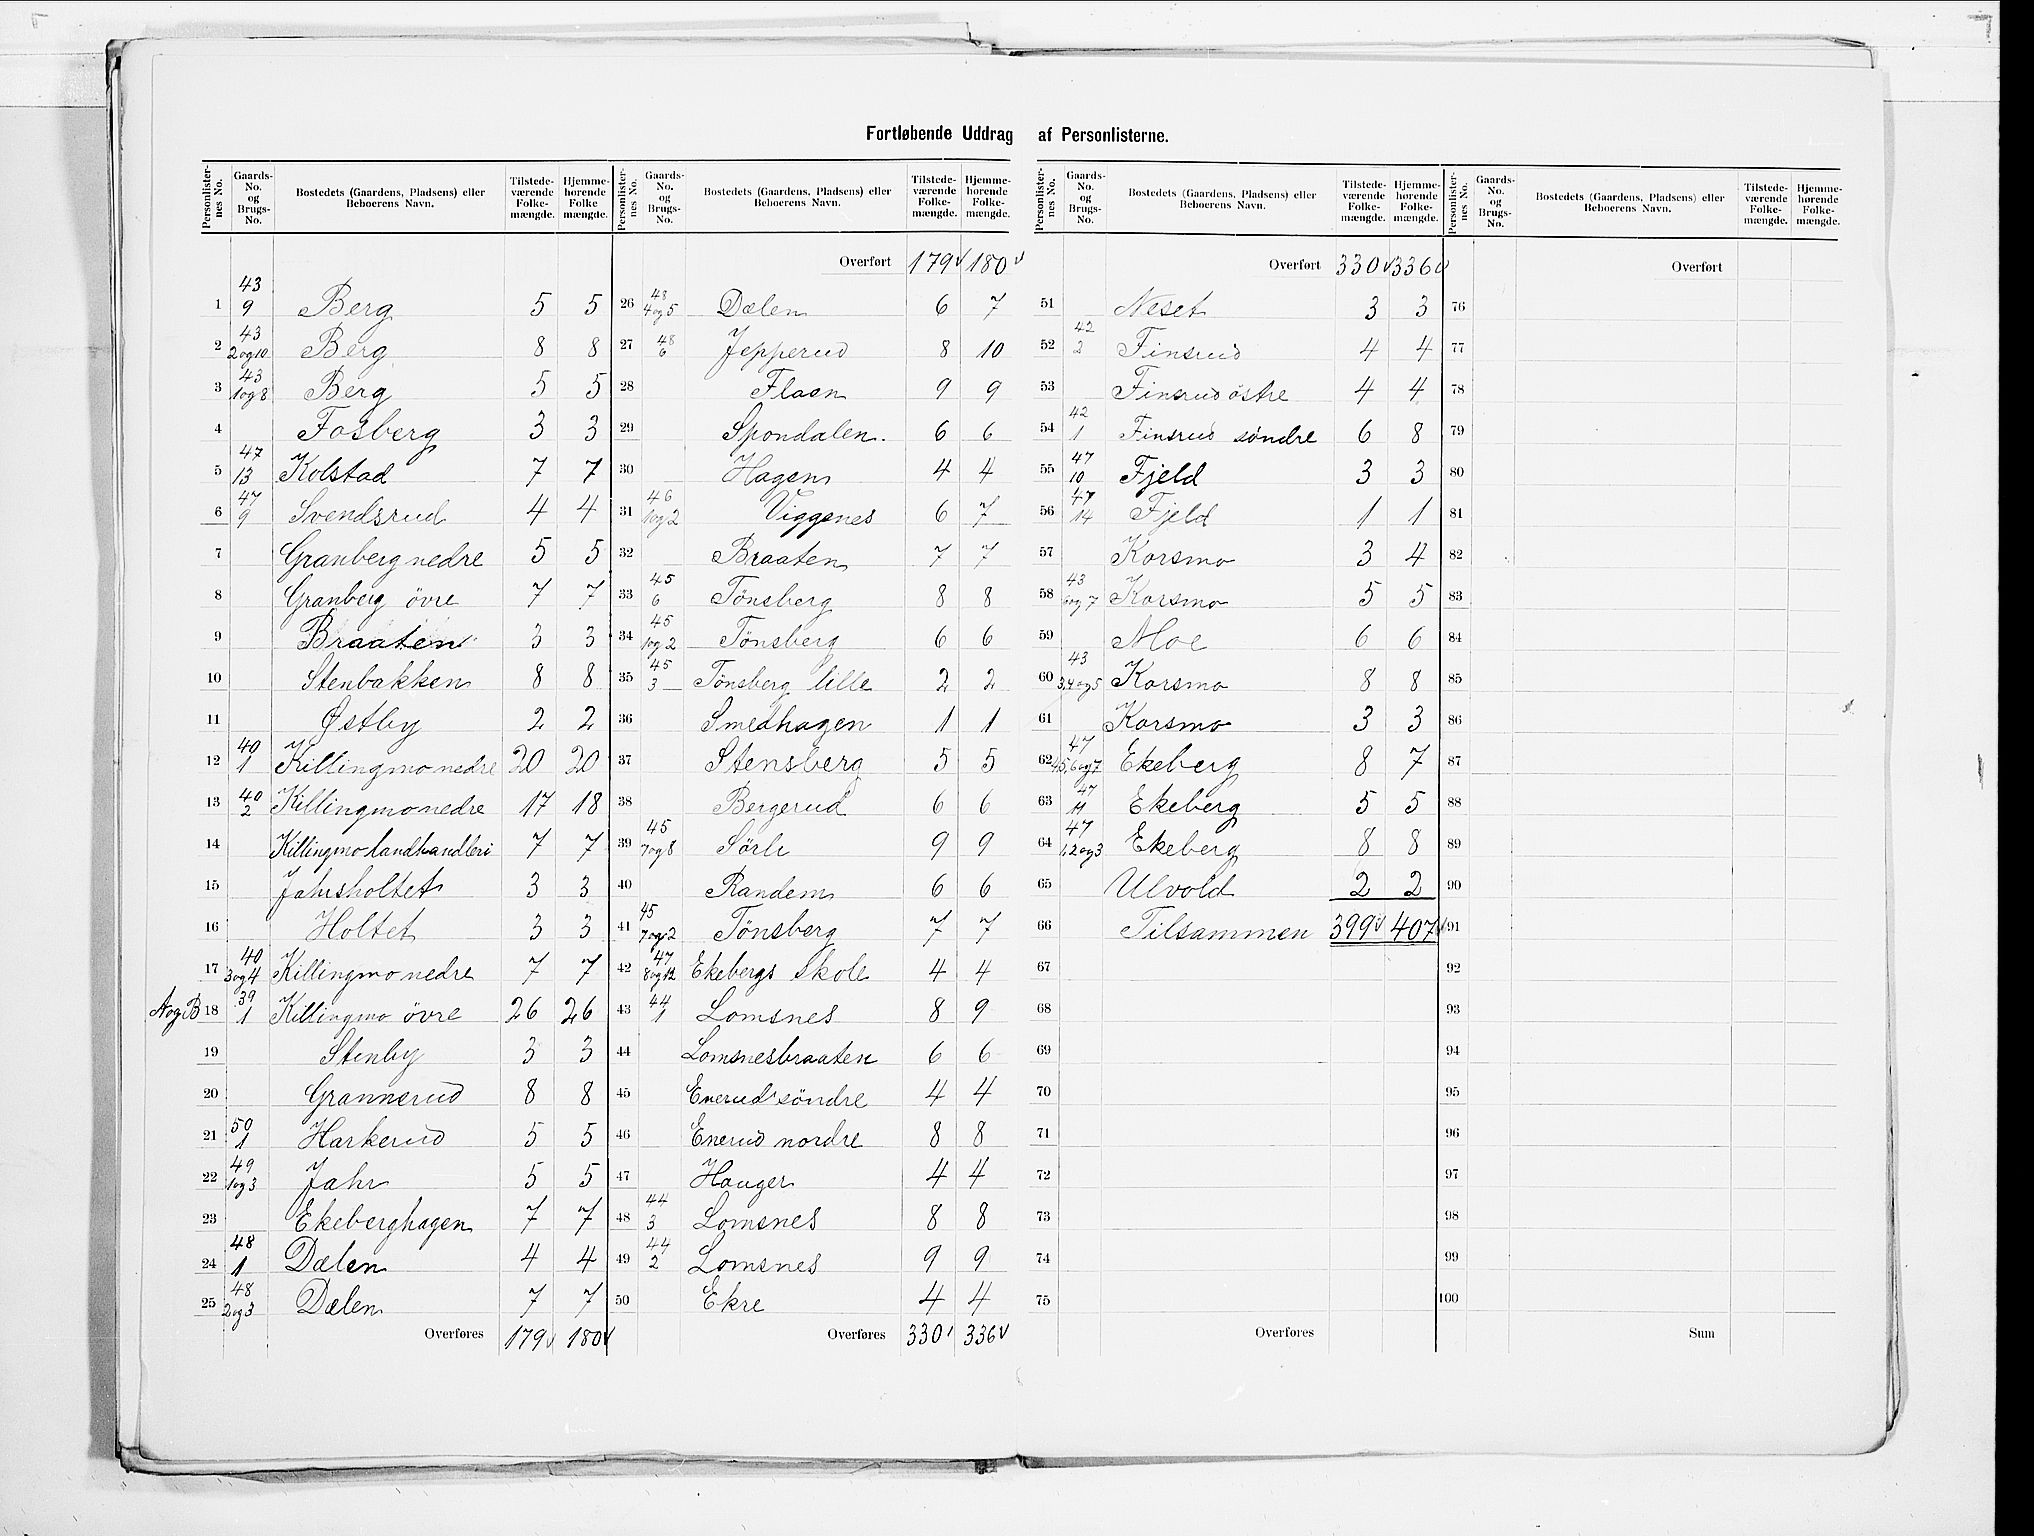 Fortløbende Uddrag af Personlisterne.
Personlisternes No. Gaards-No. og Brugs-No. Bostedets (Gaardens, Pladsens) eller Beboerens Navn. Tilstedeværende Folkemængde. Hjemmehørende Folkemængde.
1 43 9 Berg 5 5
2 43 2og10 Berg 8 8
3 43 1og8 Berg 5 5
4 Fosberg 3 3
5 47 13 Kolstad 7 7
6 47 9 Svendsrud 4 4
7 Granberg nedre 5 5
8 Granberg övre 7 7
9 Braaten 3 3
10 Stenbakken 8 8
11 Østby 2 2
12 40 1 Killingmo nedre 20 20
13 40 2 Killingmo nedre 17 18
14 Killingmo landhandleri 7 7
15 Jahrsholtet 3 3
16 Holtet 3 3
17 40 3og4 Killingmo nedre 7 7
A og B 18 39 1 Killingmo övre 26 26
19 Stenby 3 3
20 Grannerud 8 8
21 50 1 Harkerud 5 5
22 49 1og3 Jahr 5 5
23 Ekeberghagen 7 7
24 48 1 Dælen 4 4
25 48 2og3 Dælen 7 7
Overføres 179 180
Personlisternes No. Gaards-No. og Brugs-No. Bostedets (Gaardens, Pladsens) eller Beboerens Navn. Tilstedeværende Folkemængde. Hjemmehørende Folkemængde.
Overført 179 180
26 48 4og5 Dælen 6 7
27 48 6 Jepperud 8 10
28 Flaen 9 9
29 Spondalen. 6 6
30 Hagen 4 4
31 46 1og2 Viggenes 6 7
32 Braaten 7 7
33 45 6 Tönsberg 8 8
34 45 1og2 Tönsberg 6 6
35 45 3 Tönsberg lille 2 2
36 Smedhagen 1 1
37 Stensberg 5 5
38 Bergerud 6 6
39 45 7og8 Sörli 9 9
40 Randem 6 6
41 45 7og2 Tönsberg 7 7
42 47 8og12 Ekebergs Skole 4 4
43 44 1 Lomsnes 8 9
44 Lomsnesbraaten 6 6
45 Enerud söndre 4 4
46 Enerud nordre 8 8
47 Hauger 4 4
48 44 3 Lomsnes 8 8
49 44 2 Lomsnes 9 9
50 Ekre 4 4
Overføres 330 336
Personlisternes No. Gaards-No. og Brugs-No. Bostedets (Gaardens, Pladsens) eller Beboerens Navn. Tilstedeværende Folkemængde. Hjemmehørende Folkemængde.
Overført 330 336
51 Neset 3 3
52 42 2 Finsrud 4 4
53 Finsrud östre 4 4
54 42 1 Finsrud söndre 6 8
55 47 10 Fjeld 3 3
56 47 14 Fjeld 1 1
57 Korsmo 3 4
58 43 6og7 Korsmo 5 5
59 Moe 6 6
60 43 3,4og5 Korsmo 8 8
61 Korsmo 3 3
62 47 4,5,6og7 Ekeberg 8 7
63 47 11 Ekeberg 5 5
64 47 1,2og3 Ekeberg 8 8
65 Ulvold 2 2
66 Tilsammen 399 407
67
68
69
70
71
72
73
74
75
Overføres
Personlisternes No. Gaards-No. og Brugs-No. Bostedets (Gaardens, Pladsens) eller Beboerens Navn. Tilstedeværende Folkemængde. Hjemmehørende Folkemængde.
Overført
76
77
78
79
80
81
82
83
84
85
86
87
88
89
90
91
92
93
94
95
96
97
98
99
100
Sum